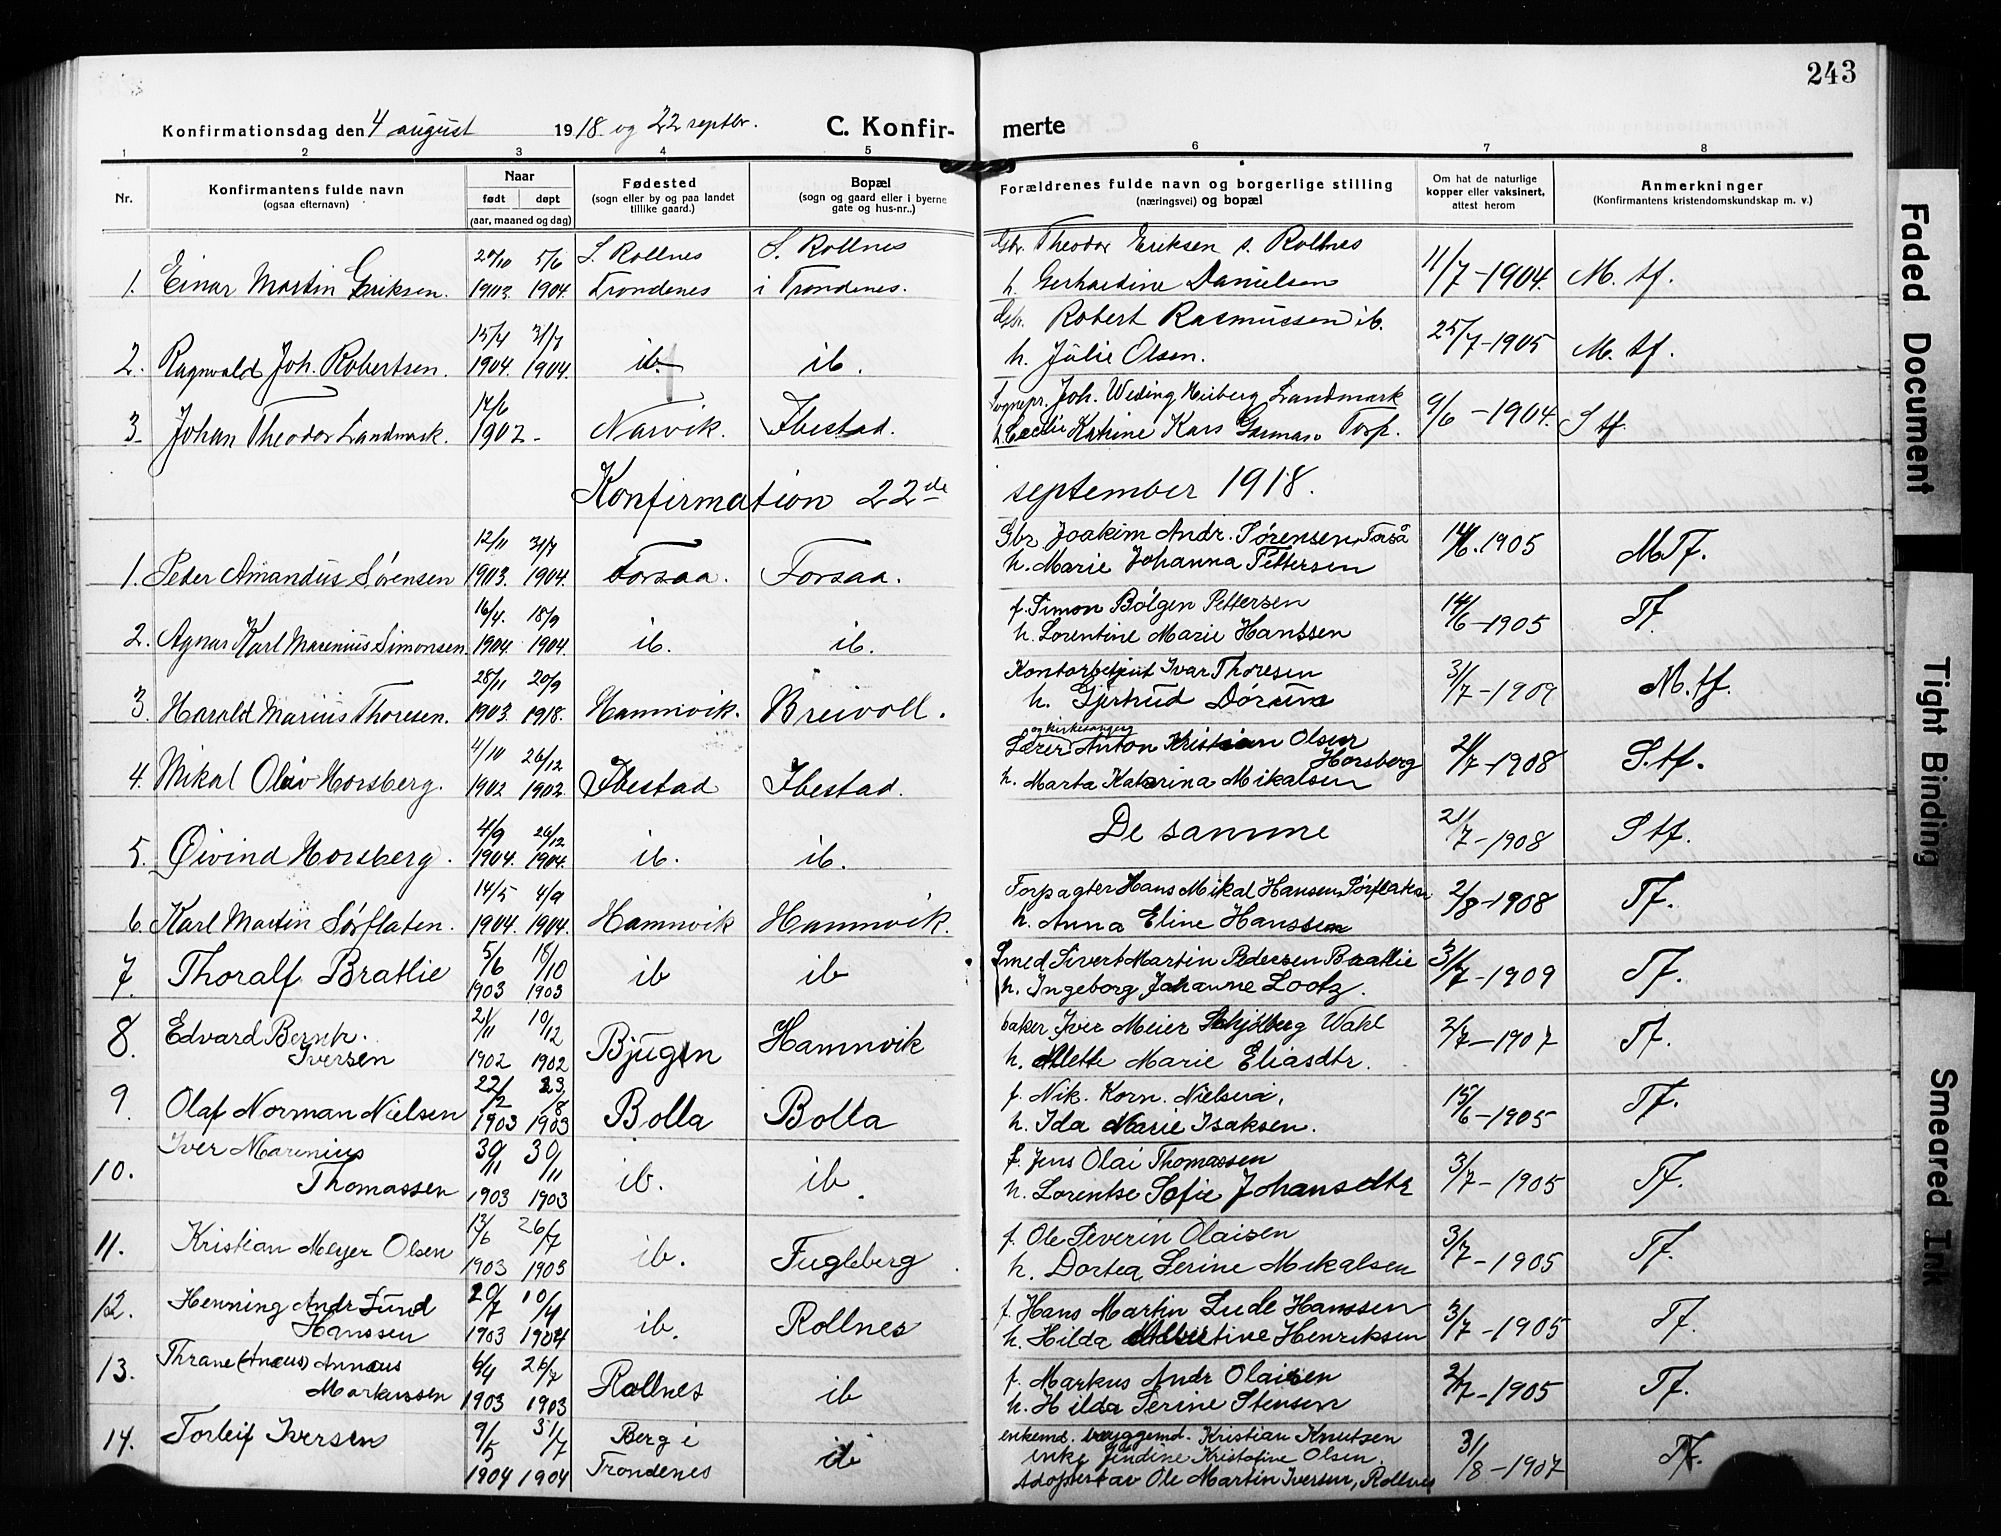 243
Konfirmationsdag den 4 august 1918 og 22 septbr. C. Konfir- merte
1 2 3 4 5 6 7 8
Nr. Konfirmantens fulde navn (ogsaa efternavn) Naar født døpt (aar, maaned og dag) Fødested (sogn eller by og paa landet tillike gaard.) Bopæl (sogn og gaard eller i byerne gate og hus-nr.). Forældrenes fulde navn og borgerlige stilling (næringsvei) og bopæl Om hat de naturlige kopper eller vaksinert, attest herom Anmerkninger (Konfirmantens kristendomskundskap m. v.)
20/10 5/6 S. Rollnes S. Rollnes Gbr. Theodor Eriksen s. Rollnes
1. Einar Martin Eriksen. 1903. 1904. Trondenes i Trondenes. h. Gerhardine Danielsen 11/7-1904. M. tf.
15/4 31/7 Gbr. Robert Rasmussen ib.
2. Ragnvald Joh. Robertsen. 1904. 1904. ib. ib. h. Julie Olsen. 25/7-1905 M. tf.
17/6 Sognepr. Joh. Weding Heiberg Landmark
3. Johan Theodor Landmark. 1902 - Narvik. Ibestad. h. Cecilie Katrine Kars Garmann Torp. 9/6-1904. S tf.
Konfirmation 22de september 1918.
12/11 31/7 Gbr Joakim Andr. Sørensen, Forså
1. Peder Amandus Sørensen 1903. 1904. Forsaa. Forsaa. h. Marie Johanna Pettersen 14/6. 1905 M Tf.
16/4. 18/9 f. Simon Bølgen Pettersen
2. Agnar Karl Marenius Simonsen. 1904. 1904. ib. ib. h. Lorentine Marie Hanssen 14/6-1905 Tf.
28/11 20/9 Kontorbetjent Ivar Thoresen
3. Harald Marius Thoresen. 1903. 1918. Hamnvik. Breivoll. h. Gjertrud Dørum 31/7-1909 M. tf.
4/10 26/12 Lærer og kirkesanger Anton Kristian Olsen Horsberg
4. Mikal Olav Horsberg. 1902 1902. Ibestad Ibestad. h. Marta Katarina Mikalsen 21/7-1908 S. tf.
4/9 26/12
5. Øivind Horsberg. 1904. 1904. ib. ib. De samme 21/7-1908 S tf.
14/5 4/9 Forpagter Hans Mikal Hansen Sørflaten
6. Karl Martin Sørflaten. 1904. 1904. Hamnvik Hamnvik. h. Anna Eline Hanssen 2/8-1908 Tf.
5/6 18/10 Smed Sivert Martin Pedersen Bratlie
7. Thoralf Bratlie 1903 1903 ib ib h. Ingeborg Johanne Lootz. 31/7-1909 Tf.
21/11 10/12 baker Iver Meier Schjølberg Wahl
8. Edvard Bernh. Iversen 1902 1902 Bjugn Hamnvik h. Alette Marie Eliasdtr. 2/7-1907 Tf.
22/2 23/8 f. Nik. Korn. Nielsen,
9. Olaf Norman Nielsen 1903 1903 Bolla Bolla h. Ida Marie Isaksen. 15/6-1905 Tf.
30/11 30/11 f. Jens Olai Thomassen
10. Iver Marenius Thomassen 1903 1903 ib. ib. h. Lorentse Sofie Johansdtr 3/7-1905 Tf.
13/6 26/7 f. Ole Severin Olaisen
11. Kristian Meyer Olsen 1903 1903 ib. Fugleberg. h. Dortea Serine Mikalsen 3/7-1905 Tf.
20/7 10/4 f. Hans Martin Lude Hanssen
12. Henning Andr Lund Hanssen 1903 1904 ib. Rollnes h. Hilda Albertine Henriksen 3/7-1905 Tf.
6/4 26/7 f. Markus Andr Olaisen
13. Thrane (Anæus) Annæus Markussen 1903 1903 Rollnes ib h. Hilda Serine Stensen 2/7-1905 Tf.
9/5 31/7 Berg i enkemd. bryggemd. Kristian Knutsen
14. Torleif Iversen 1904 1904 Trondenes ib enke Jendine Kristofine Olsen. 31/8-1907 Tf.
Adoptert av Ole Martin Iversen, Rollnes
Faded Document
Tight Binding
Smeared Ink